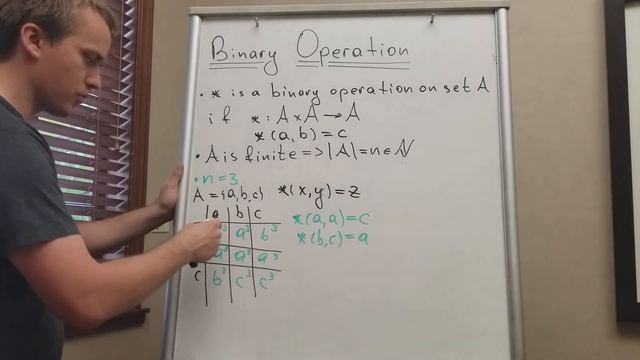 Binary Operation
• * is a binary operation on set A
if *: A x A → A
*(a, b) = c
• A is finite => |A| = n ∈ N
• n = 3
A = {a, b, c} *(x, y) = z
a b c
*(a, a) = c
³ a³ b³
*(b, c) = a
a³ a³ a³
c b³ c³ c³